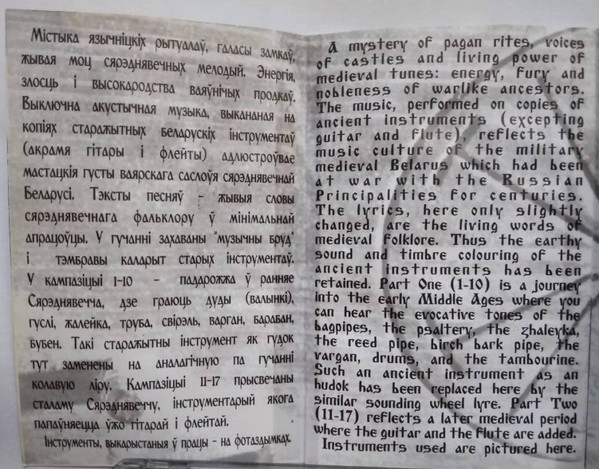 Містыка язычніцкіх рытуалаў, галасы замкаў,
жывая моц сярэднявечных мелодый. Энергія,
злосць і высокародства ваяўнічых продкаў.
Выключна акустычная музыка, выкананая на
копіях старажытных беларускіх інструментаў
(акрамя гітары і флейты) адлюстроўвае
мастацкія густы ваярскага саслоўя сярэднявечнай
Беларусі. Тэксты песняў - жывыя словы
сярэднявечнага фальклору ў мінімальнай
апрацоўцы. У гучанні захаваны "музычны бруд"
і тэмбравы каларыт старых інструментаў.
У кампазіцыі 1-10 - падарожжа ў ранняе
Сярэднявечча, дзе граюць дуды (валынкі),
гуслі, жалейка, труба, свірэль, варган, барабан,
бубен. Такі старажытны інструмент як гудок
тут заменены на аналагічную па гучанні
колавую ліру. Кампазіцыі 11-17 прысвечаны
сталаму Сярэднявеччу, інструментарый якога
папаўняецца ўжо гітарай і флейтай.
Інструменты, выкарыстаныя ў працы - на фотаздымках.
A mystery of pagan rites, voices
of castles and living power of
medieval tunes: energy, fury and
nobleness of warlike ancestors.
The music, performed on copies of
ancient instruments (excepting
guitar and flute), reflects the
music culture of the military
medieval Belarus which had been
at war with the Russian
Principalities for centuries.
The lyrics, here only slightly
changed, are the living words of
medieval folklore. Thus the earthy
sound and timbre colouring of the
ancient instruments has been
retained. Part One (1-10) is a journey
into the early Middle Ages where you
can hear the evocative tones of the
bagpipes, the psaltery, the zhaleyka,
the reed pipe, birch bark pipe, the
vargan, drums, and the tambourine.
Such an ancient instrument as an
hudok has been replaced here by the
similar sounding wheel lyre. Part Two
(11-17) reflects a later medieval period
where the guitar and the flute are added.
Instruments used are pictured here.